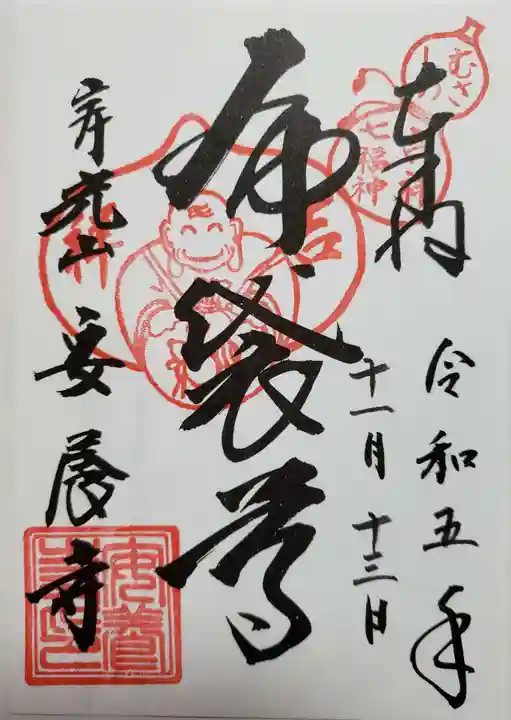 奉拝
令和五年
十一月十三日
むさしの
吉祥
七福神
布袋尊
宝光山
安養寺
安養